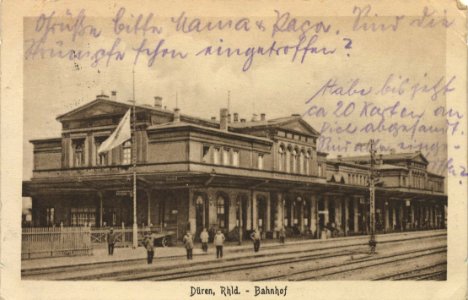 Grüße bitte Mama & Papa. Sind die
Strümpfe schon eingetroffen?
Habe bis jetzt
ca 20 Karten an
abgesandt.
Sind alle einge-
Düren, Rhld. - Bahnhof